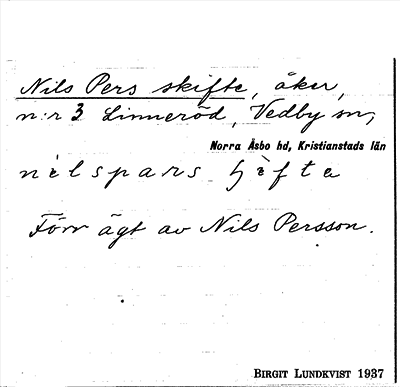 Nils Pers skifte, åker,
n:r 3 Linneröd, Vedby sn,
Norra Åsbo hd, Kristianstads län
nèlspars ɧèfte
Förr ägt av Nils Persson.
BIRGIT LUNDKVIST 1937